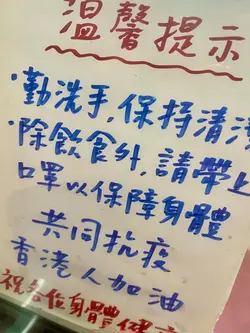 溫馨提示
·勤洗手,保持清潔
·除飲食外,請帶上
口罩以保障身體
共同抗疫
香港人加油
祝各位身體健